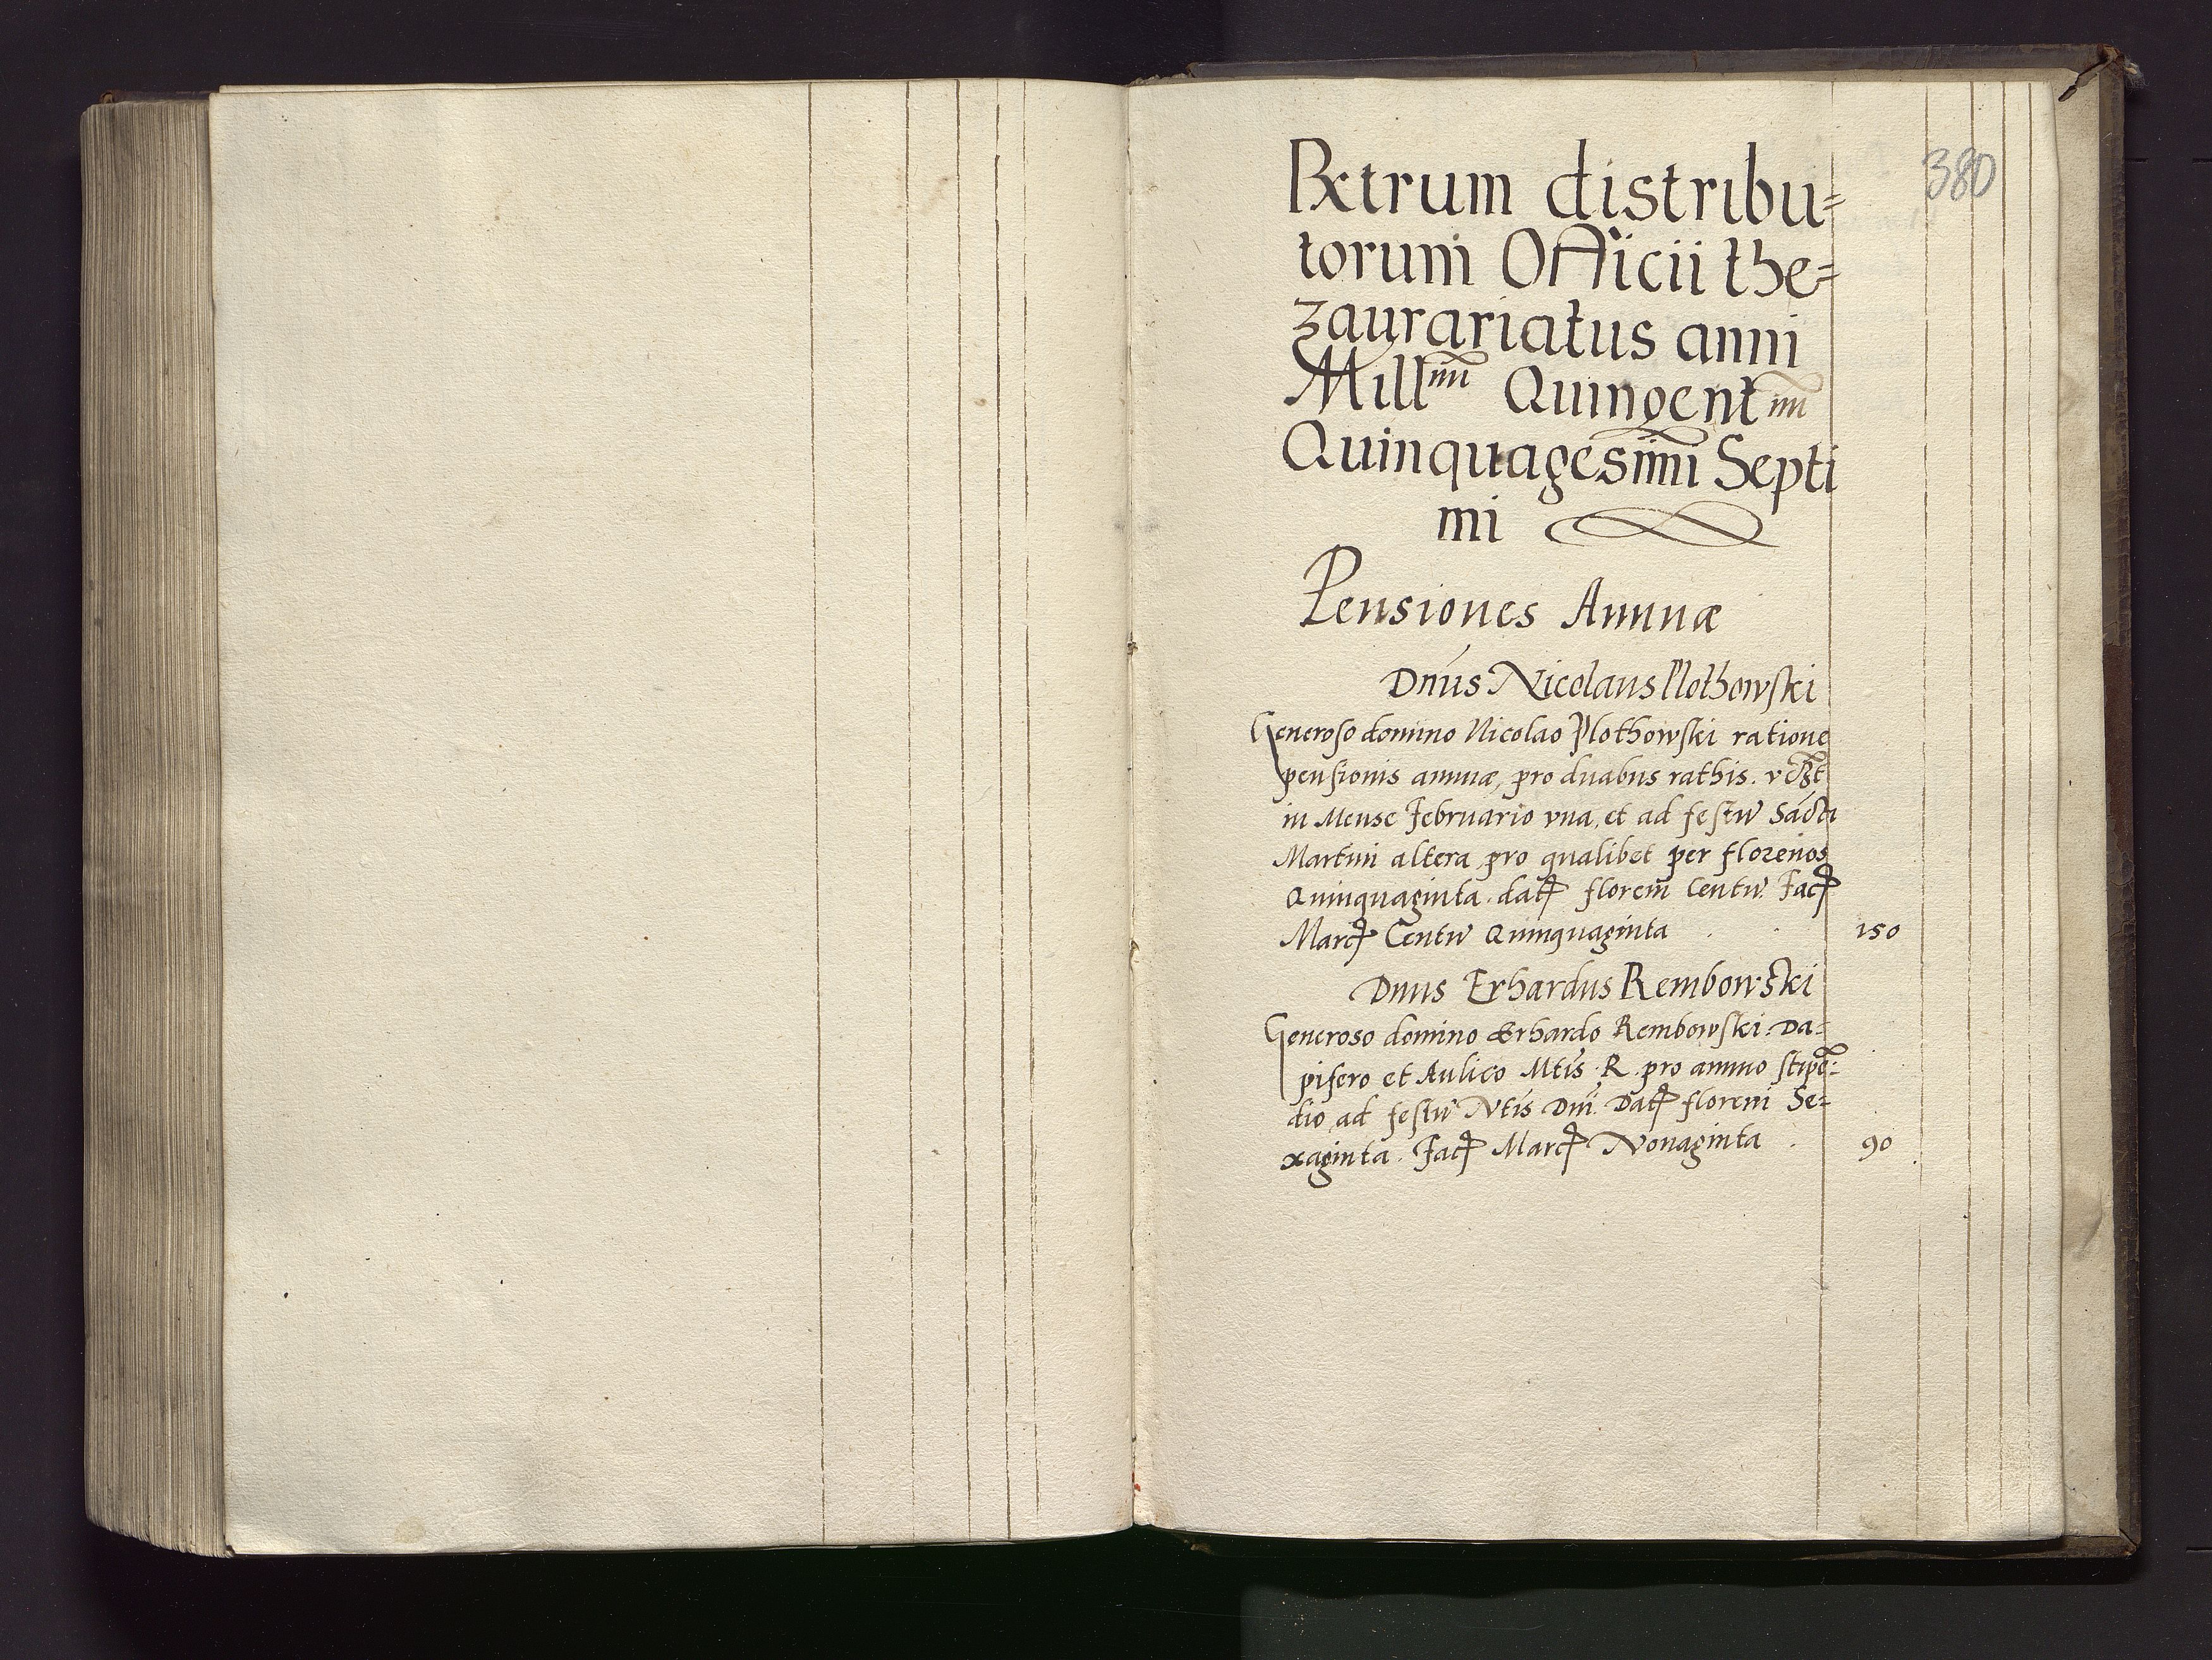 380
Rx̄trum distribu=
torum Officii the=
zaurariatus anni
Millmi Quingentmi
Quinquagesimi Septi
mi
Pensiones Annuæ
Dnus Nicolaus Plothowski
Generoso domino Nicolao Plothowski ratione
pensionis annuæ, pro duabus rathis.
in Mense Februario vna, et ad festu Sācti
Martini altera pro qualibet per florenos
Quinquaginta. datꝭ floreni Centu. Facꝭ
Marcꝭ Centu Quinquaginta 150
Dnus Erhardus Rembowski
Generoso domino Erhardo Rembowski. Da=
pifero et Aulico Mtis R. pro annuo stipe=
dio ad festu Ntis Dni. Datꝭ floreni Se=
xaginta. Facꝭ Marcꝭ Nonaginta 90